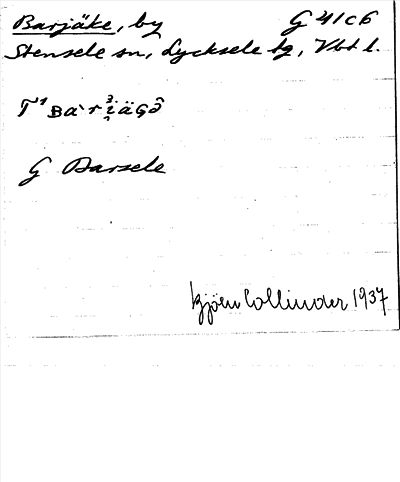 Barjäke, by G 41c6
Stensele sn, Lycksele lg, Vbt l.
G Barsele
Björn Collinder 1937